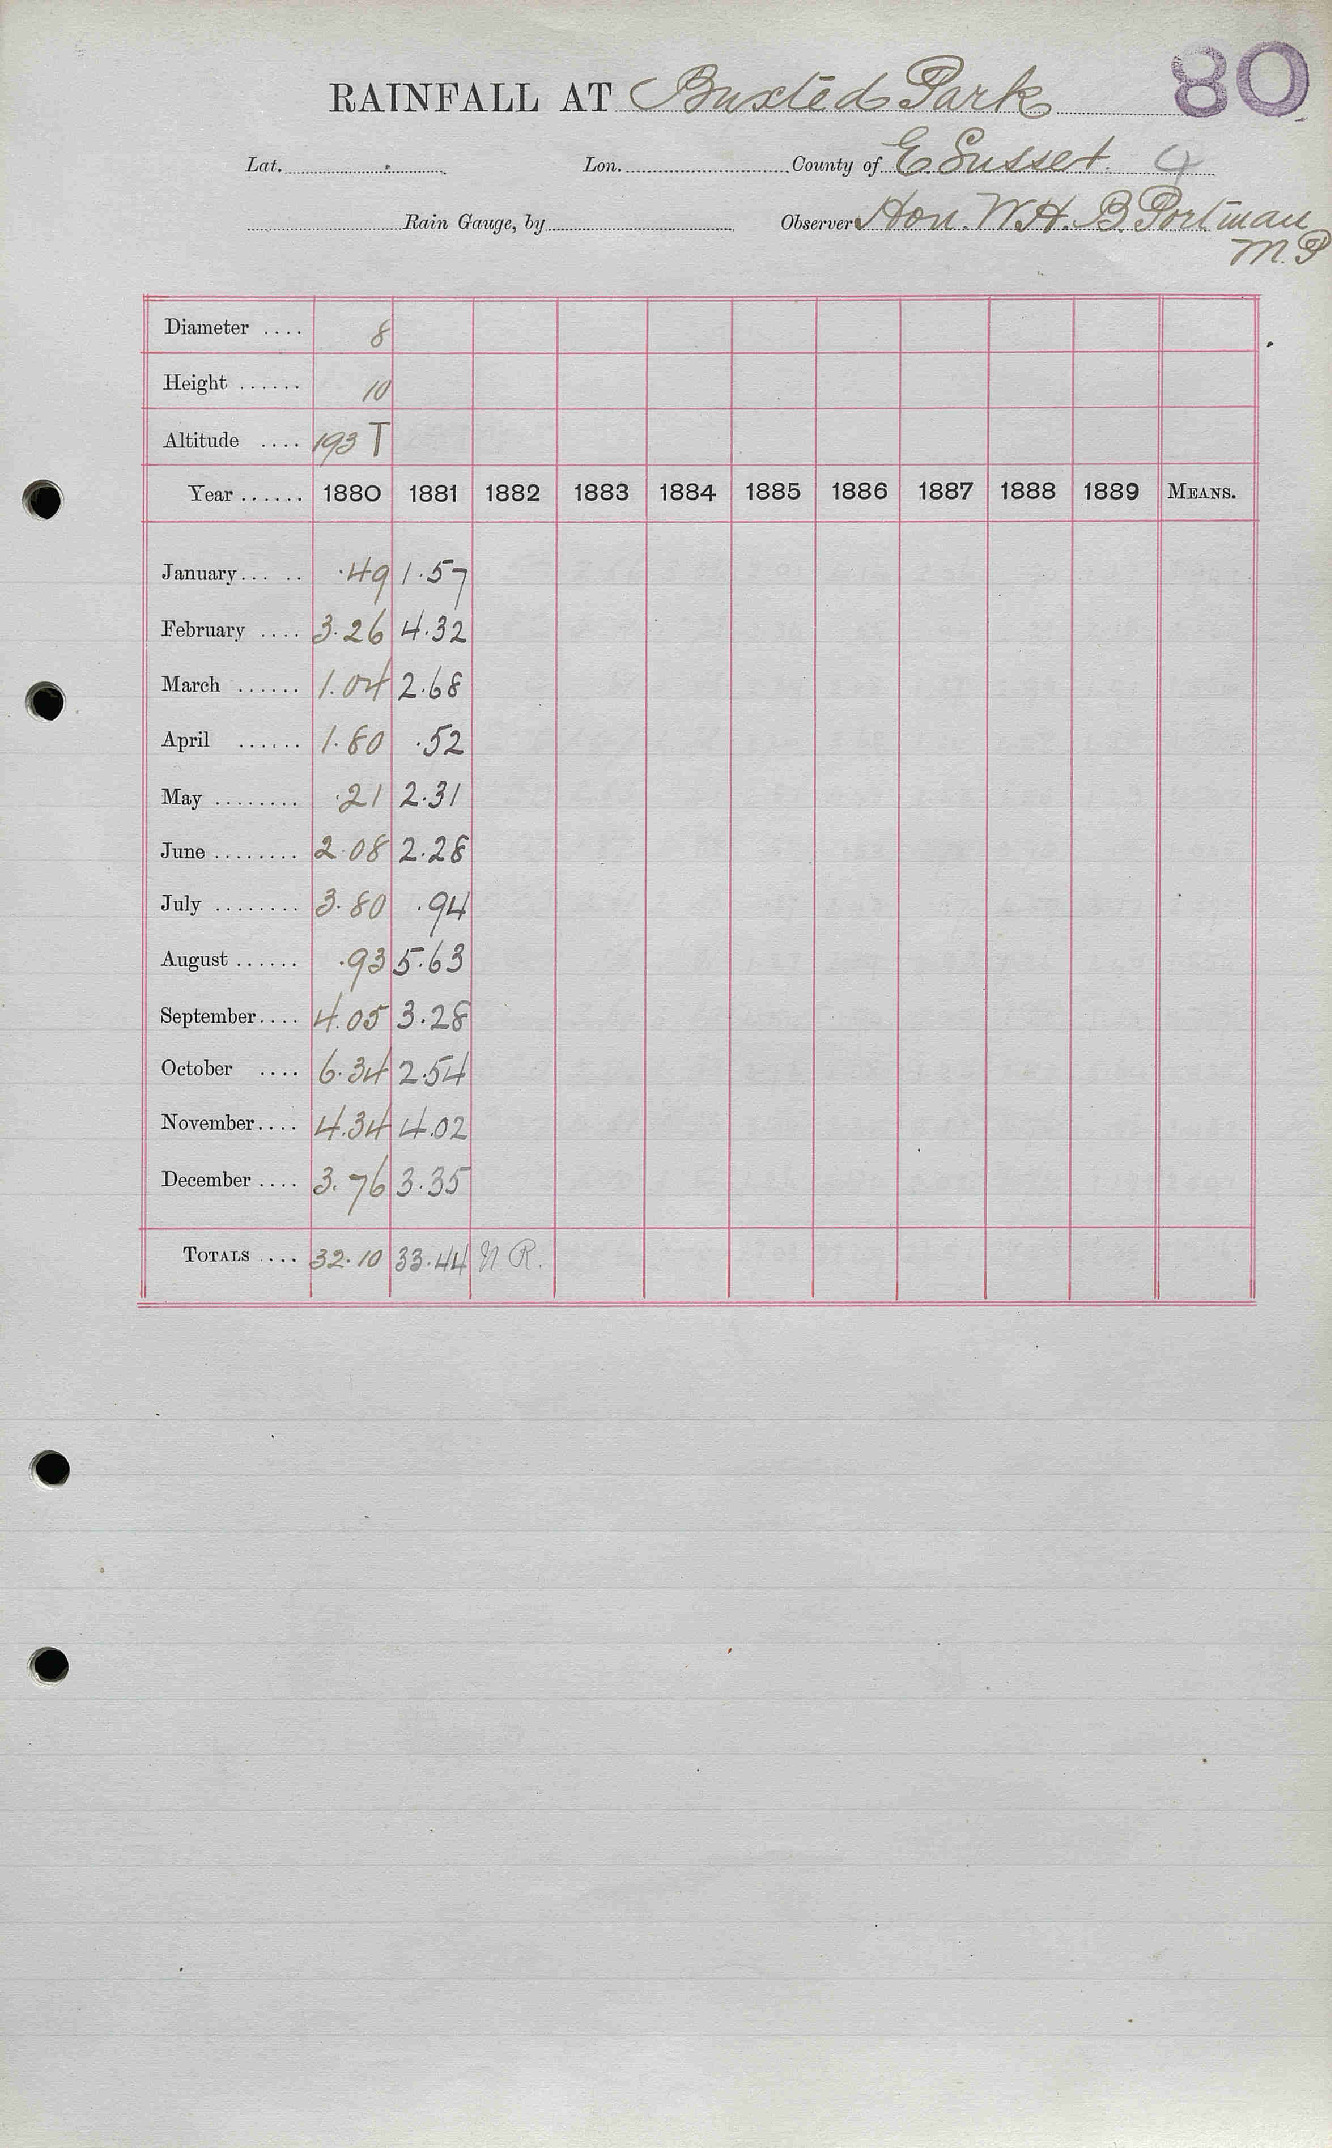 80
RAINFALL AT Buxted Park
Lat. Lon. County of E. Sussex. 4
Rain Gauge, by Observer Hon. W. H. B. Portman
M.P
Diameter .... 8
Height ...... 10
Altitude .... 193 T
Year ...... 1880 1881 1882 1883 1884 1885 1886 1887 1888 1889 MEANS.
January ... .. .49 1.57
February .... 3.26 4.32
March ...... 1.04 2.68
April ...... 1.80 .52
May ........ .21 2.31
June ........ 2.08 2.28
July ........ 3.80 .94
August ...... .93 5.63
September .... 4.05 3.28
October .... 6.34 2.54
November .... 4.34 4.02
December .... 3.76 3.35
TOTALS .... 32.10 33.44 N R.